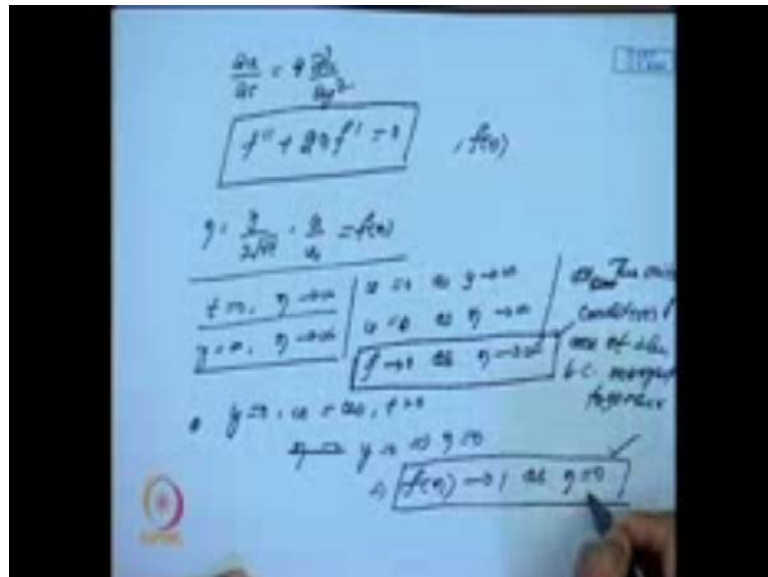 ∂u/∂t = ν ∂²u/∂y²
f'' + 2η f' = 0 , f(η)
η = y/2√νt , u/u₀ = f(η)
t = 0, η → ∞
y = ∞, η → ∞
u = 0 as y → ∞
u = 0 as η → ∞
f → 0 as η → ∞
The
conditions &
one of the
b.c. merged
together
y = 0, u = u₀, t > 0
y = 0 ⇒ η = 0
⇒ f(η) → 1 as η = 0